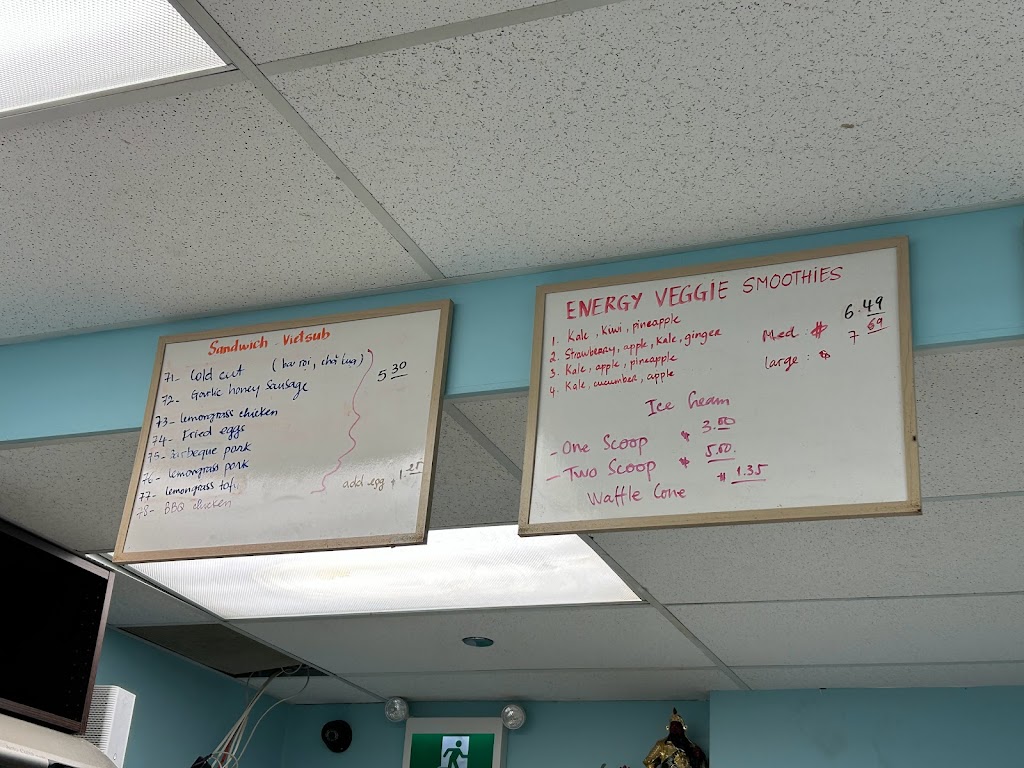 Sandwich Vietsub
71- Cold cut
72- Garlic honey sausage
73- Lemongrass chicken
74- Fried eggs
75- Barbeque pork
76- Lemongrass pork
77- Lemongrass tofu
78- BBQ chicken
5.30
add egg $1.25
ENERGY VEGGIE SMOOTHIES
1. Kale, Kiwi, pineapple
2. Strawberry, apple, kale, ginger
3. Kale, apple, pineapple
4. Kale, cucumber, apple
Med: $ 6.49
large: $ 7.69
Ice Cream
- One Scoop $ 3.50
- Two Scoop $ 5.50.
Waffle Cone $ 1.35